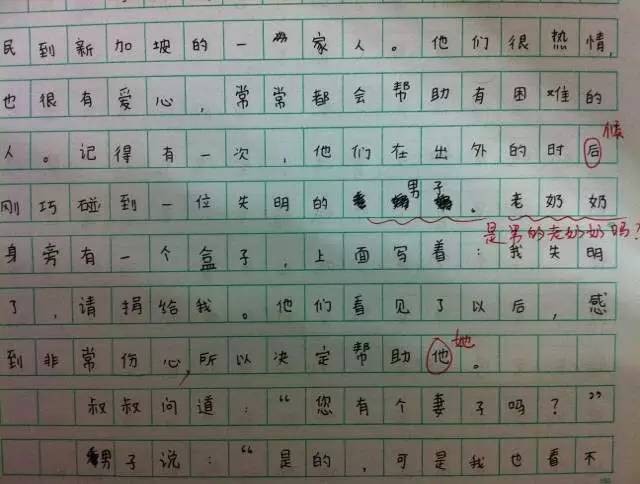 民到新加坡的一家人。他们很热情，
也很有爱心，常常都会帮助有困难的
候
人。记得有一次，他们在出外的时后
男子
刚巧碰到一位失明的。老奶奶
是男的老奶奶吗？
身旁有一个盒子，上面写着：我失明
了，请捐给我。他们看见了以后，感
她
到非常伤心，所以决定帮助他。
叔叔问道：“您有个妻子吗？”
男子说：“是的，可是我也看不